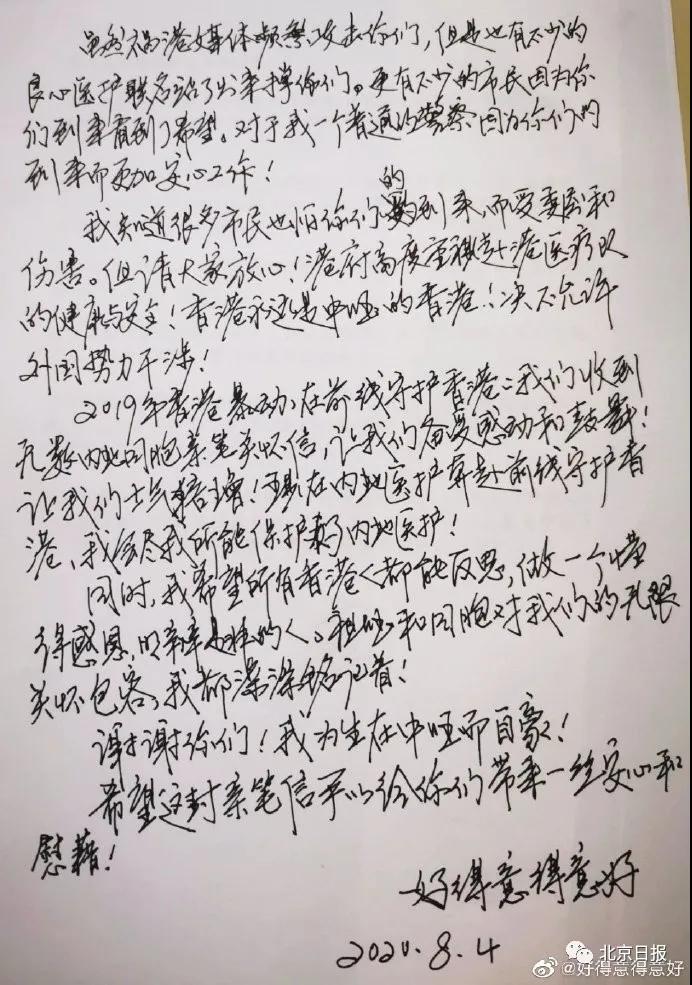 虽然祸港媒体频繁攻击你们，但是也有不少的
良心医护联名站了出来撑你们。更有不少的市民因为你
们到来看到了希望。对于我一个普通的警察因为你们的
到来而更加安心工作！
我知道很多市民也怕你们的到来，而受委屈和
伤害。但请大家放心！港府高度重视赴港医疗队
的健康与安全！香港永远是中国的香港！决不允许
外国势力干涉！
2019年香港暴动，在前线守护香港；我们收到
无数内地同胞亲笔关怀信，让我们备受感动和鼓舞！
让我们士气倍增！现在内地医护奔赴前线守护香
港，我会尽我所能保护内地医护！
同时，我希望所有香港人都能反思，做一个懂
得感恩，明辨是非的人。祖国和同胞对我们的无限
关怀包容，我都深深铭记着！
谢谢你们！我为生在中国而自豪！
希望这封亲笔信可以给你们带来一丝安心和
慰藉！
好得意得意好
2020.8.4
北京日报
@好得意得意好